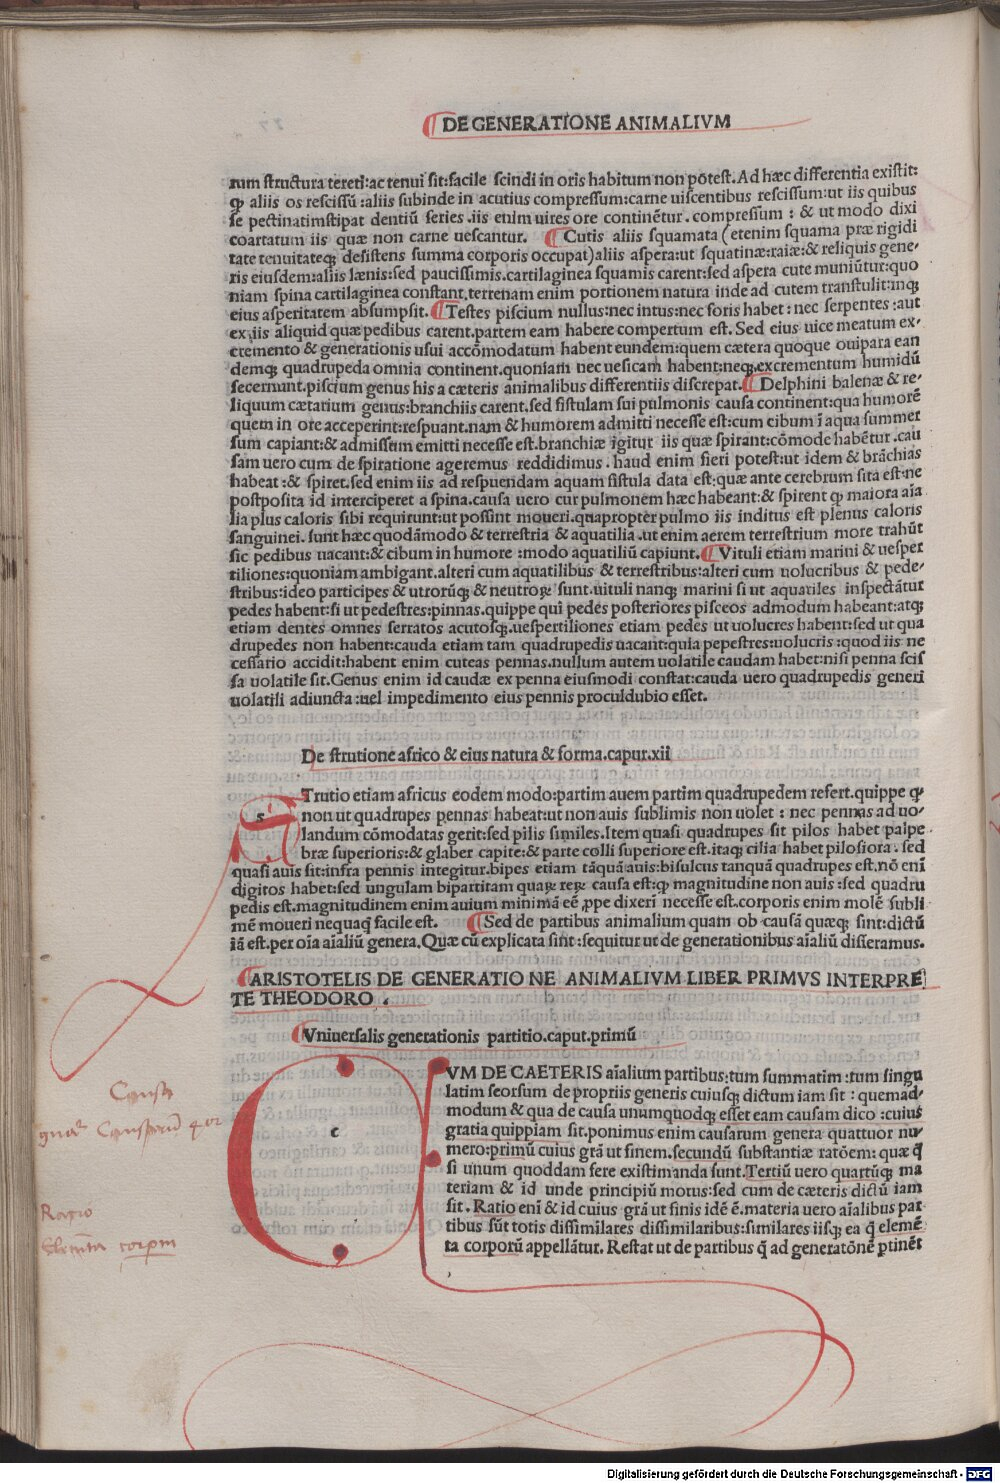 DE GENERATIONE ANIMALIVM
rum structura tereti:ac tenui sit:facile scindi in oris habitum non potest.Ad hæc differentia existit:
ꝙ aliis os rescissũ :aliis subinde in acutius compressum:carne uiscentibus rescissum:ut iis quibus
se pectinatimstipat dentiũ series .iis enim uires ore continẽtur.compressum : & ut modo dixi
coartatum iis quæ non carne uescantur. Cutis aliis squamata (etenim squama præ rigidi
tate tenuitateqꝫ desistens summa corporis occupat) aliis aspera:ut squatinæ:raiæ:& reliquis gene-
ris eiusdem:aliis lænis:sed paucissimis.cartilaginea squamis carent:sed aspera cute muniũtur:quo
niam spina cartilaginea constant.terrenam enim portionem natura inde ad cutem transtulit:inqꝫ
eius asperitatem absumpsit. Testes piscium nullus:nec intus:nec foris habet : nec serpentes :aut
ex iis aliquid quæ pedibus carent.partem eam habere compertum est. Sed eius uice meatum ex-
cremento & generationis usui accõmodatum habent eundem:quem cætera quoque ouipara ean
demqꝫ quadrupeda omnia continent.quoniam nec uesicam habent:neqꝫ.excrementum humidũ
secernunt.piscium genus his a cæteris animalibus differentiis discrepat. Delphini balenæ & re-
liquum cætarium genus:branchiis carent.sed fistulam sui pulmonis causa continent:qua humorẽ
quem in ore acceperint:respuant.nam & humorem admitti necesse est:cum cibum ĩ aqua summer
sum capiant:& admissum emitti necesse est.branchiæ igitur iis quæ spirant:cõmode habẽtur .cau
sam uero cum de spiratione ageremus reddidimus . haud enim fieri potest:ut idem & brãchias
habeat :& spiret.sed enim iis ad respuendam aquam fistula data est:quæ ante cerebrum sita est:ne
postposita id interciperet a spina.causa uero cur pulmonem hæc habeant:& spirent ꝙ maiora aĩa
lia plus caloris sibi requirunt:ut possint moueri.quapropter pulmo iis inditus est plenus caloris
sanguinei. sunt hæc quodãmodo & terrestria & aquatilia .ut enim aerem terrestrium more trahũt
sic pedibus uacant:& cibum in humore :modo aquatiliũ capiunt. Vituli etiam marini & uesper
tiliones:quoniam ambigant.alteri cum aquatilibus & terrestribus:alteri cum uolucribus & pede-
stribus:ideo participes & utrorũqꝫ & neutroꝝ sunt.uituli nanqꝫ marini si ut aquatiles inspectãtur
pedes habent:si ut pedestres:pinnas.quippe qui pedes posteriores pisceos admodum habeant:atqꝫ
etiam dentes omnes serratos acutosqꝫ.uespertiliones etiam pedes ut uolucres habent:sed ut qua
drupedes non habent:cauda etiam tam quadrupedis uacant:quia pepestres:uolucris :quod iis ne
cessario accidit:habent enim cuteas pennas.nullum autem uolatile caudam habet:nisi penna scis
sa uolatile sit.Genus enim id caudæ ex penna eiusmodi constat:cauda uero quadrupedis generi
uolatili adiuncta :uel impedimento eius pennis proculdubio esset.
De strutione africo & eius natura & forma.capur.xii
s
Trutio etiam africus eodem modo:partim auem partim quadrupedem refert.quippe ꝙ
non ut quadrupes pennas habeat:ut non auis sublimis non uolet : nec pennas ad uo-
landum cõmodatas gerit:sed pilis similes.Item quasi quadrupes sit pilos habet palpe
bræ superioris:& glaber capite:& parte colli superiore est.itaqꝫ cilia habet pilosiora . sed
quasi auis sit:infra pennis integitur.bipes etiam tãquã auis:bisulcus tanquã quadrupes est.nõ enĩ
digitos habet:sed ungulam bipartitam quaꝝ reꝝ causa est:ꝙ magnitudine non auis :sed quadru
pedis est.magnitudinem enim auium minimã eẽ ꝓpe dixeri necesse est.corporis enim molẽ subli
mẽ moueri nequaꝗ̃ facile est. Sed de partibus animalium quam ob causã quæqꝫ sint:dictũ
iã est.per oĩa aĩaliũ genera.Quæ cũ explicata sint :sequitur ut de generationibus aĩaliũ disseramus.
ARISTOTELIS DE GENERATIO NE ANIMALIVM LIBER PRIMVS INTERPRE
TE THEODORO .
Vniuersalis generationis partitio.caput.primũ
c
VM DE CAETERIS aĩalium partibus:tum summatim :tum singu
latim seorsum de propriis generis cuiusqꝫ dictum iam sit : quemad-
modum & qua de causa unumquodqꝫ esset eam causam dico :cuius
gratia quippiam sit.ponimus enim causarum genera quattuor nu-
mero:primũ cuius grã ut finem.secundũ substantiæ ratõem: quæ ꝗ̃
si unum quoddam fere existimanda sunt.Tertiũ uero quartũqꝫ ma
teriam & id unde principiũ motus:sed cum de cæteris dictũ iam
sit . Ratio enĩ & id cuius grã ut finis idẽ ẽ.materia uero aĩalibus par
tibus sũt totis dissimilares dissimilaribus:similares iisqꝫ ea ꝗ̃ elemẽ
ta corporũ appellãtur. Restat ut de partibus ꝗ̃ ad generatõnẽ ꝑtinẽt
Causa
Causarũ 4or
Ratio
Elemẽta corporum
Digitalisierung gefördert durch die Deutsche Forschungsgemeinschaft - DFG